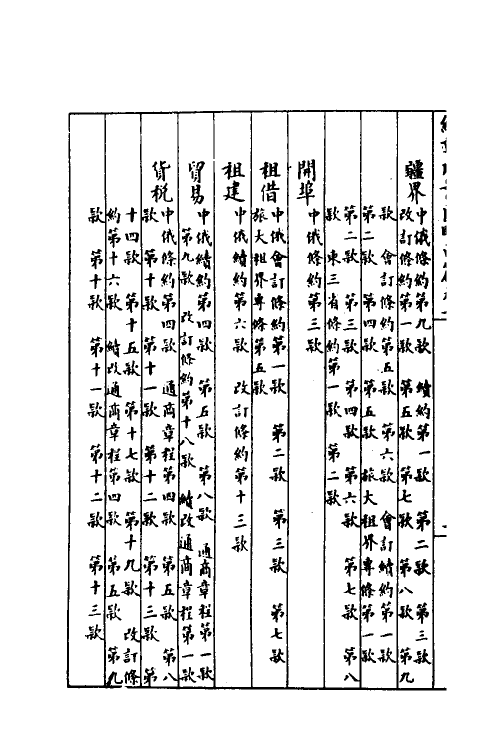 疆界 中俄條約第九款 續約第一款 第二款 第三款
改訂條約第一款 第五款 第七款 第八款 第九
款 會訂條約第五款 第六款 會訂續約第一款
第二款 第四款 第五款 旅大租界專條第一款
第二款 第三款 第四款 第六款 第七款 第八
款 東三省條約第一款 第二款
開埠 中俄條約第三款
租借 中俄會訂條約第一款 第二款 第三款 第七款
旅大租界專條第五款
租建 中俄續約第六款 改訂條約第十三款
貿易 中俄續約第四款 第五款 第八款 通商章程第一款
第九款 改訂條約第十八款 續改通商章程第一款
貨税 中俄條約第四款 通商章程第四款 第五款 第八
款 第十款 第十一款 第十二款 第十三款 第
十四款 第十五款 第十七款 第十九款 改訂條
約第十六款 續改通商章程第四款 第五款 第九
款 第十款 第十一款 第十二款 第十三款